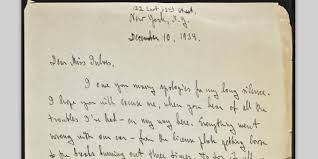 New York, N.Y.
December 10, 1939.
Dear Miss
I owe you many apologies for my long silence.
I hope you will excuse me, when you hear of all the
troubles I've had - on my way here. Everything went
wrong with our car - from the license plate getting loose
to the brakes burning out three times. To